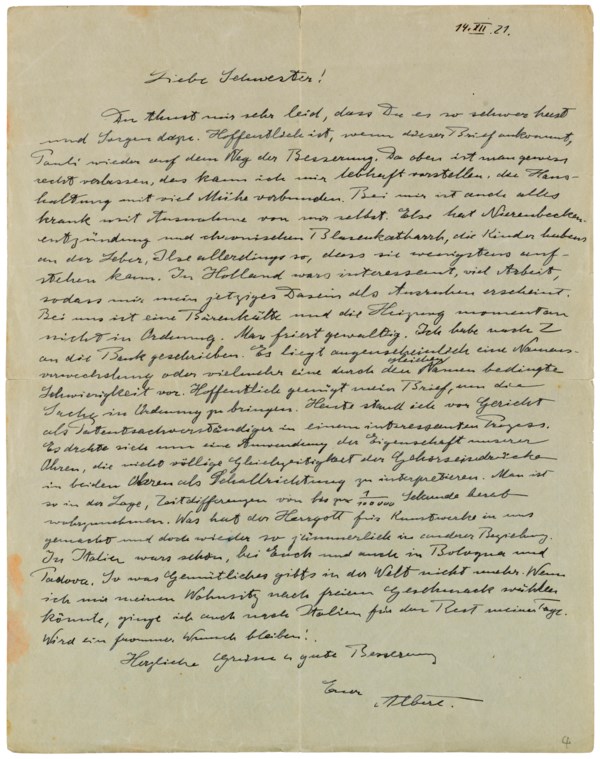 14.XII.21.
Liebe Schwester!
Du thust mir sehr leid, dass Du es so schwer hast
und Sorgen dazu. Hoffentlich ist, wenn dieser Brief ankommt,
Pauli wieder auf dem Weg der Besserung. Da oben ist man gewiss
recht verlassen, das kann ich mir lebhaft vorstellen, die Haus-
haltung mit viel Mühe verbunden. Bei mir ist auch alles
krank mit Ausnahme von mir selbst. Else hat Nierenbecken-
entzündung und chronischen Blasenkatharrh, die Kinder habens
an der Leber, Ilse allerdings so, dass sie wenigstens auf-
stehen kann. In Holland wars interessant, viel Arbeit,
sodass mir mein jetziges Dasein als Ausruhen erscheint.
Bei uns ist eine Bärenkälte und die Heizung momentan
nicht in Ordnung. Man friert gewaltig. Ich habe nach Z
an die Bank geschrieben. Es liegt augenscheinlich eine Namens-
verwechslung oder vielmehr eine durch den gleichen Namen bedingte
Schwierigkeit vor. Hoffentlich genügt mein Brief, um die
Sache in Ordnung zu bringen. Heute stand ich vor Gericht
als Patentsachverständiger in einem interessanten Prozess.
Es drehte sich um eine Anwendung der Eigenschaft unserer
Ohren, die nicht völlige Gleichzeitigkeit der Gehörseindrücke
in beiden Ohren als Schallrichtung zu interpretieren. Man ist
so in der Lage, Zeitdifferenzen von bis zu Sekunde herab
wahrzunehmen. Was hat der Herrgott für Kunstwerke in uns
gemacht und doch wieder so jämmerlich in anderer Beziehung.
In Italien wars schön, bei Euch und auch in Bologna und
Padova. So was Gemütliches gibts in der Welt nicht mehr. Wenn
ich mir meinen Wohnsitz nach freiem Geschmack wählen
könnte, ginge ich auch nach Italien für den Rest meiner Tage.
Wird ein frommer Wunsch bleiben!
Herzliche Grüsse u gute Besserung
Euer
Albert.